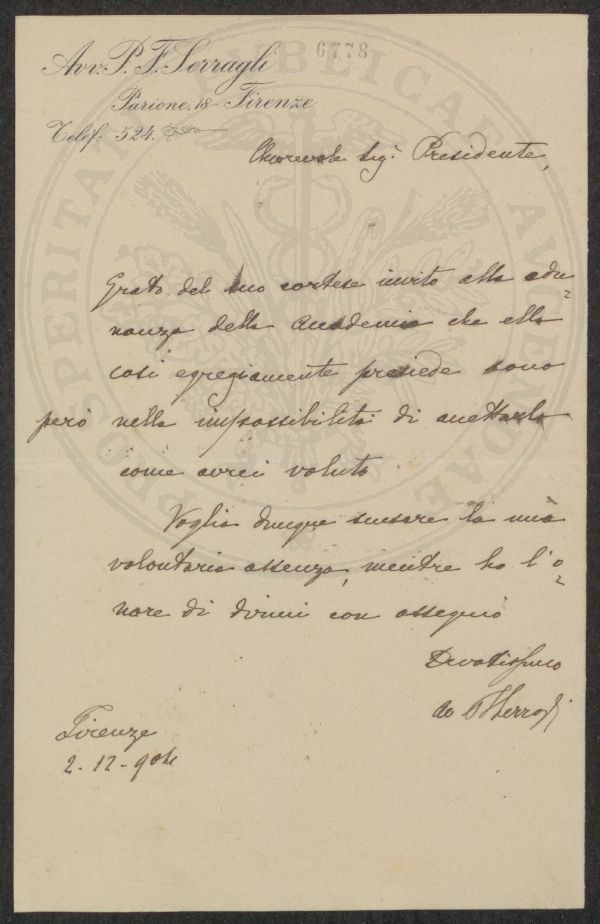 6778
Avv: P. F. Serragli
Parione, 18 - Firenze
Telef. 524.
Onorevole Sig: Presidente,
Grato del suo cortese invito alla adu=
nanza della Accademia che ella
così egregiamente presiede sono
però nella impossibilità di accettarlo
come avrei voluto.
Voglia dunque scusare la mia
volontaria assenza, mentre ho l'o=
nore di dirmi con ossequio
Devotissimo
Serragli
Firenze
2-12-904
PROSPERITATI PUBLICAE AUGENDAE